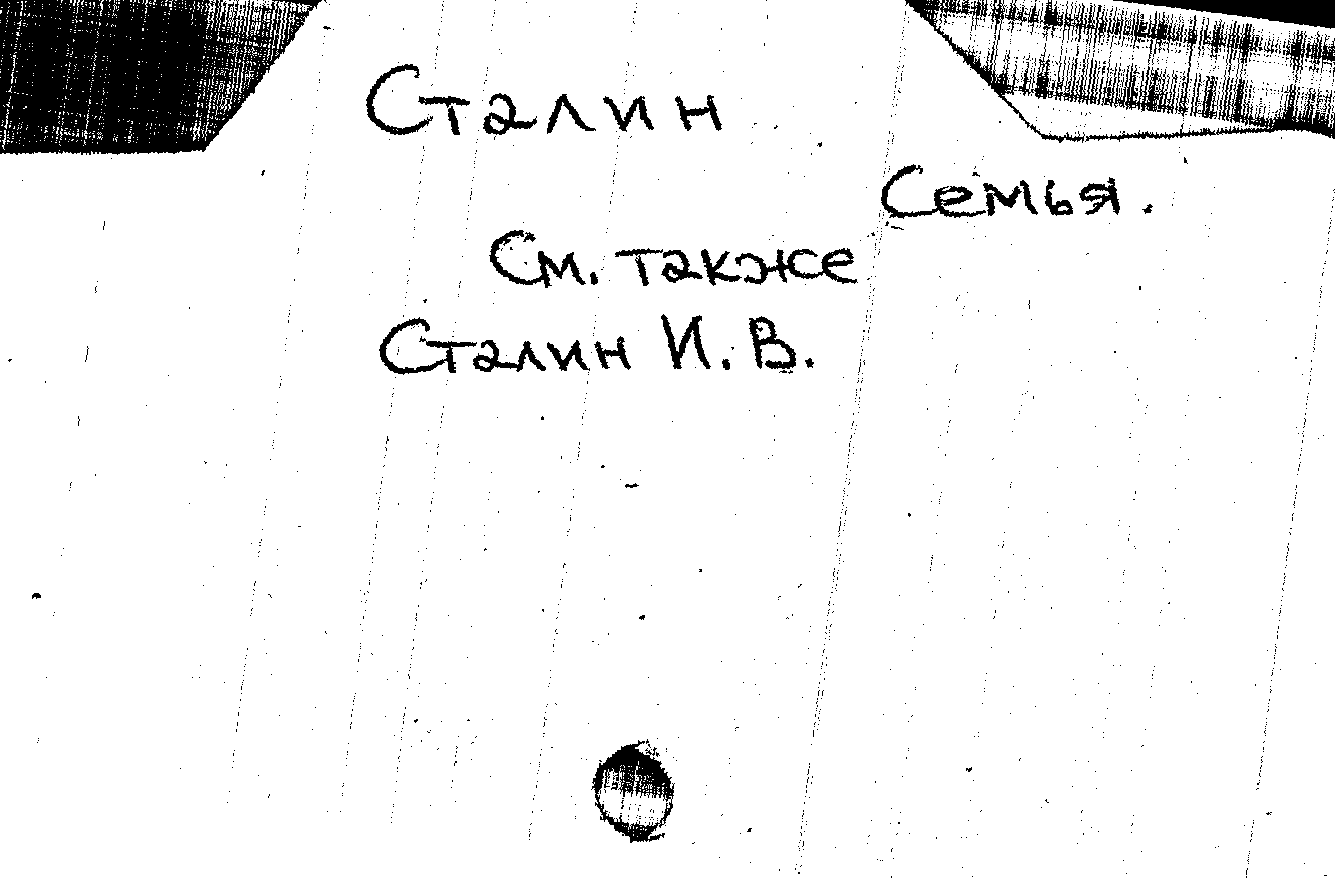 Сталин
Семья.
См. также
Сталин И. В.